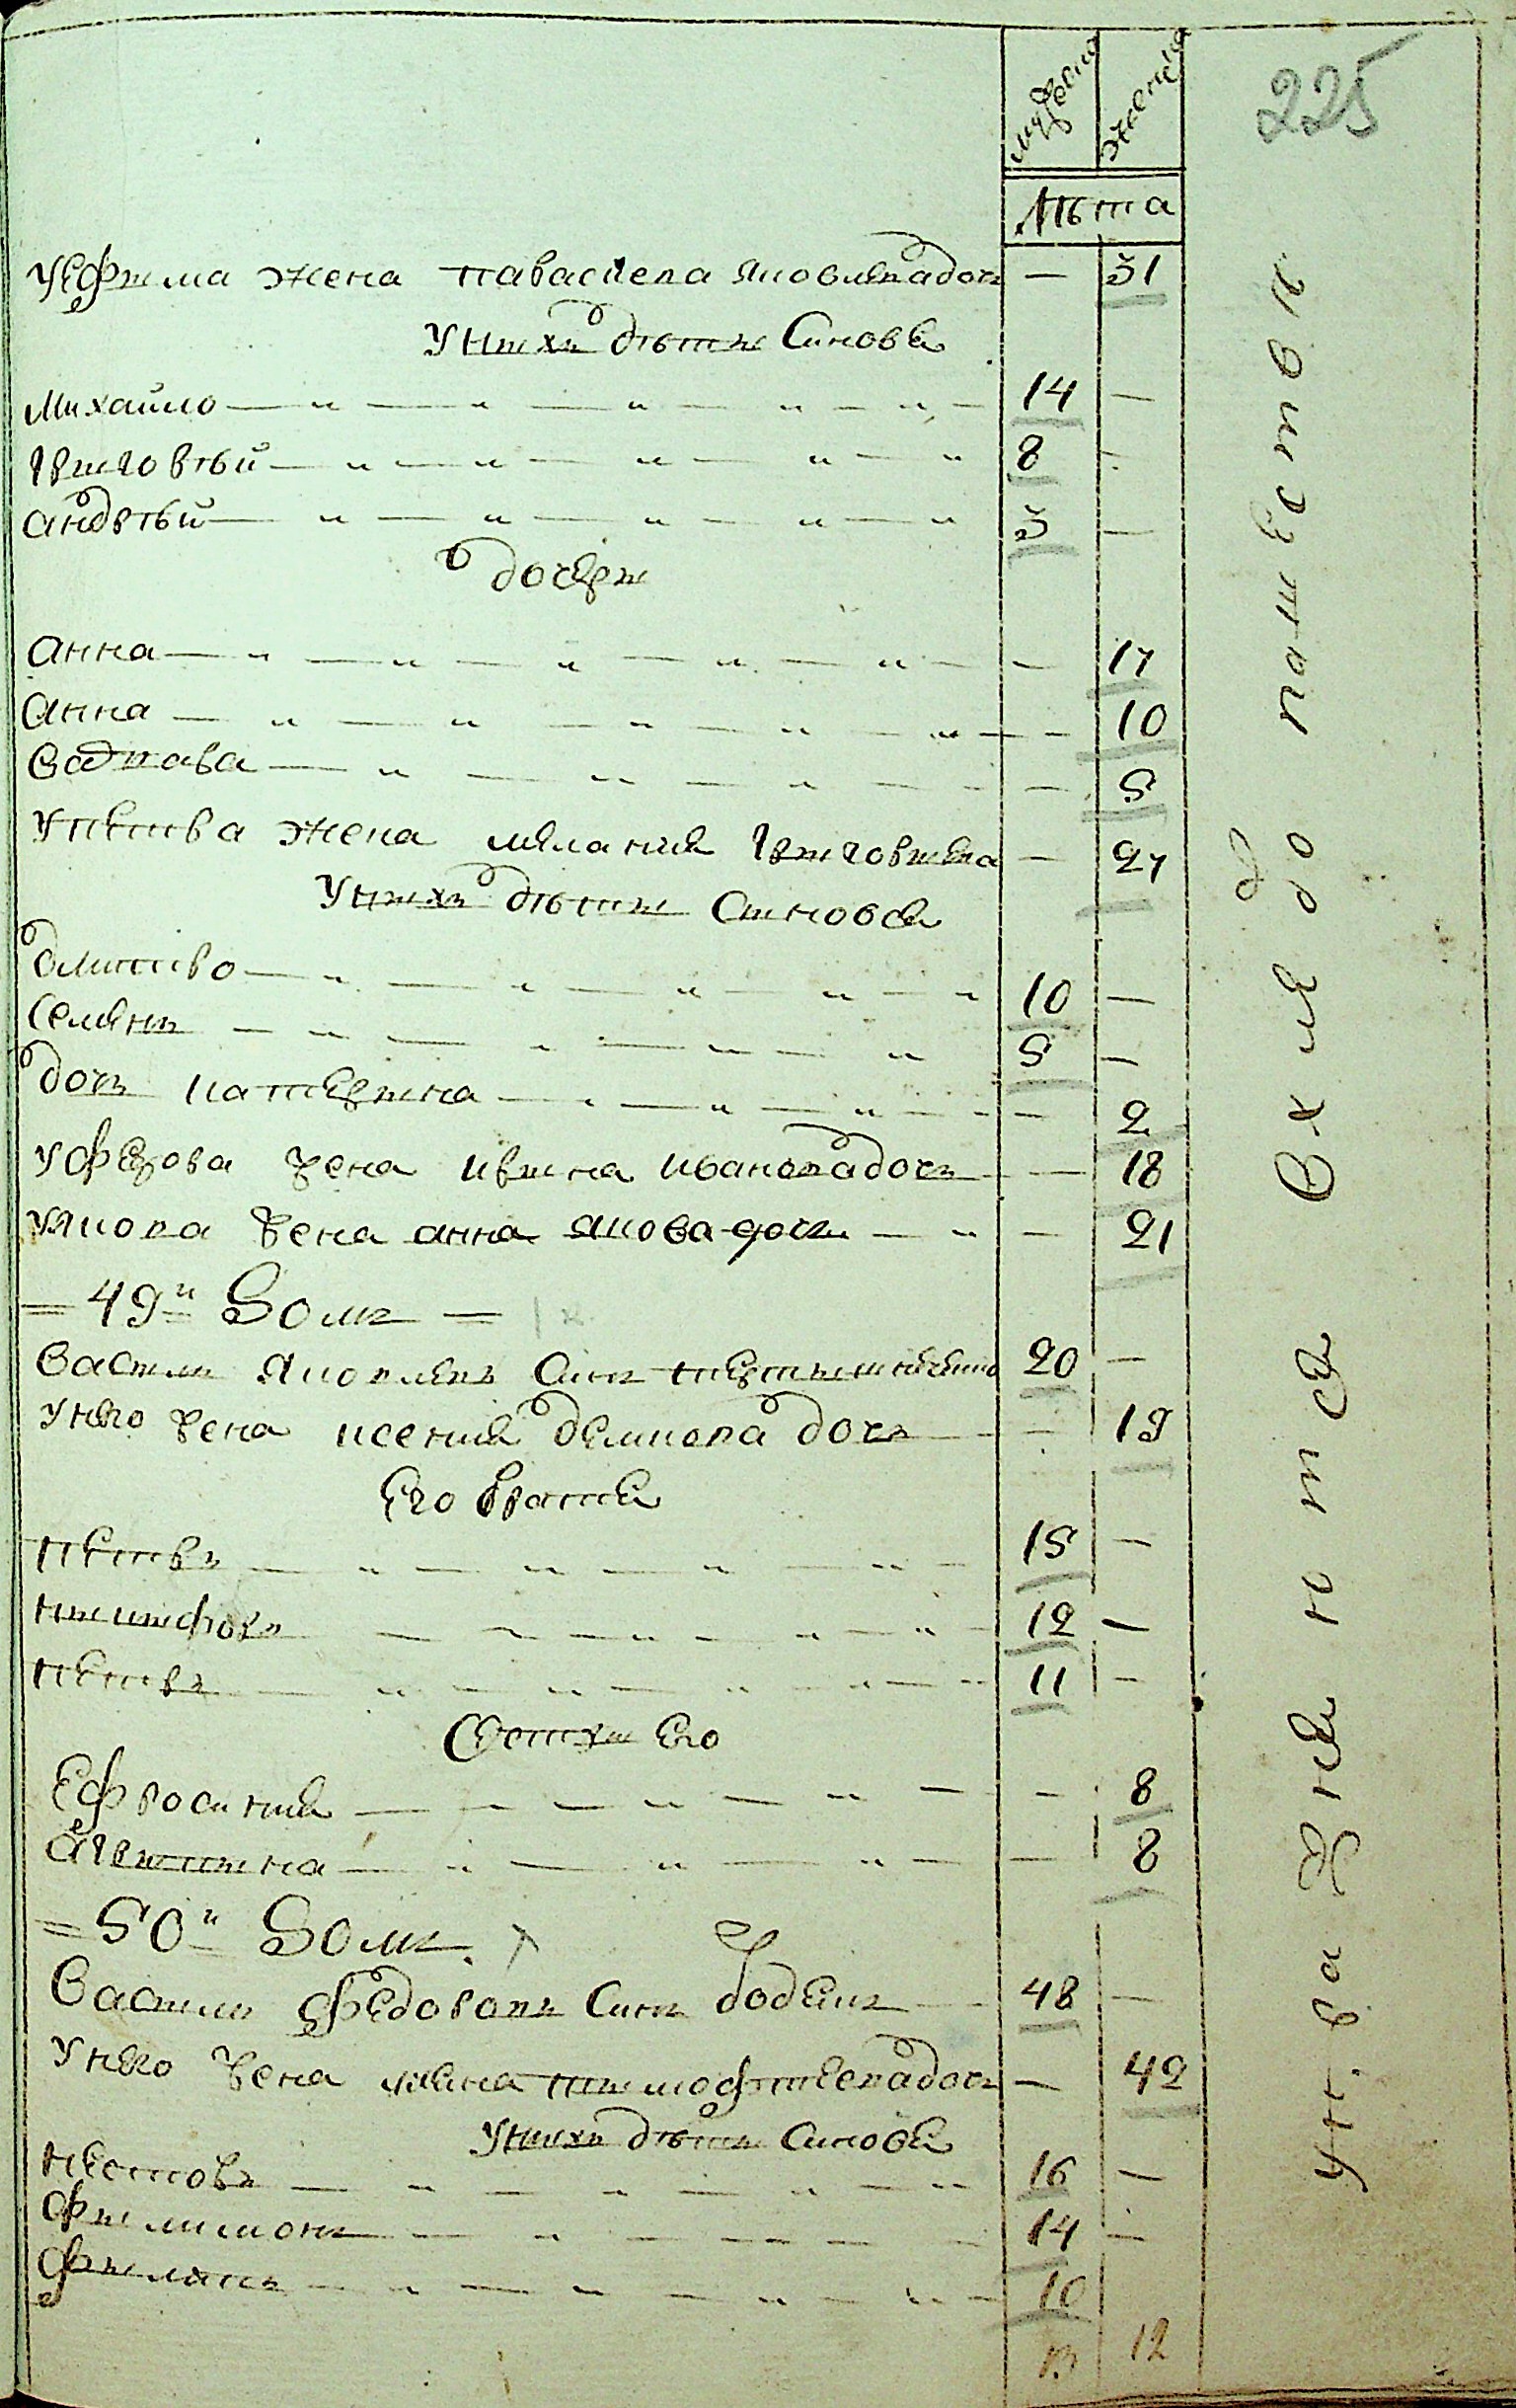 225
мужеска женска
лѣта
У Ефима жена Параскева Яковлева дочъ — 31
У нихъ дѣти Синове
Михайло — 14 —
Григорѣй — 8 —
андрѣй — 3 —
дочери
анна — 17
анна — 10
Варвара — 5
У Петра жена мелания Григориева — 27
У нихъ дѣти Синове
дмитро — 10 —
Семенъ — 5 —
дочъ Катерина — 2
У Федора жена ирина иванова дочъ — 18
У Якова жена анна Якова дочъ — 21
= 49й Домъ =
Василь Яковлевъ Синъ 20 —
У него жена ксения демкова дочъ — 19
Его братья
Петръ — 15 —
Никифоръ — 12 —
Петръ — 11 —
Сестри Его
Ефросиния — 8
агрипина — 8
= 50й Домъ
Василь Федоровъ Синъ 48 —
У него жена Тимофѣева дочъ — 42
У нихъ дѣти Синове
Несторъ — 16 —
Филимонъ — 14 —
Филипъ — 10
13 12